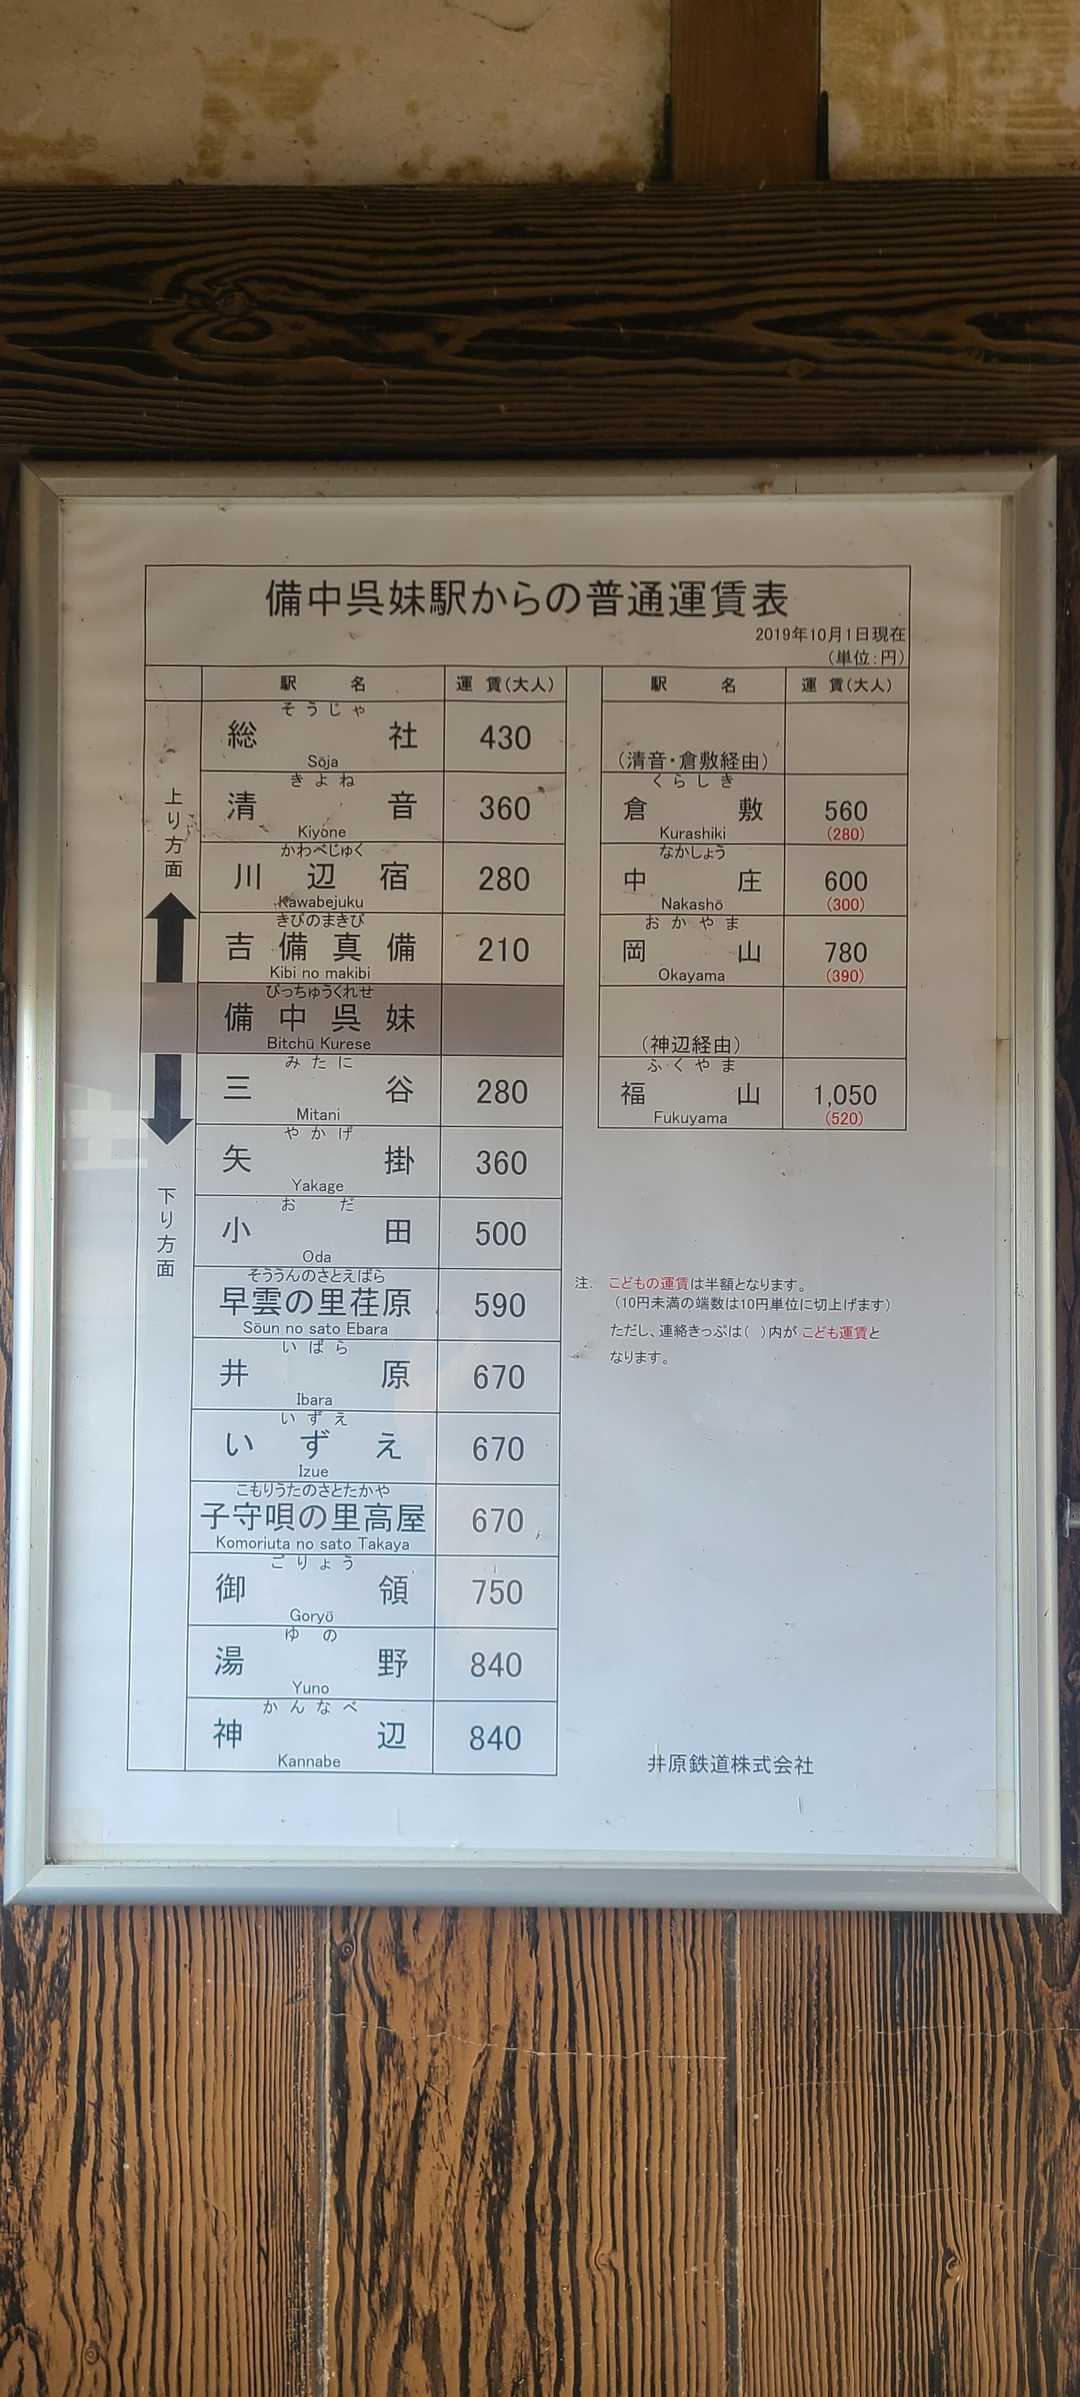 備中呉妹駅からの普通運賃表
2019年10月1日現在
(単位:円)
駅 名 運 賃(大人)
上り方面
そうじゃ
総社 430
Sōja
きよね
清音 360
Kiyone
かわべじゅく
川辺宿 280
Kawabejuku
きびのまきび
吉備真備 210
Kibi no makibi
びっちゅうくれせ
備中呉妹
Bitchū Kurese
下り方面
みたに
三谷 280
Mitani
やかげ
矢掛 360
Yakage
おだ
小田 500
Oda
そううんのさとえばら
早雲の里荏原 590
Sōun no sato Ebara
いばら
井原 670
Ibara
いずえ
いずえ 670
Izue
こもりうたのさとたかや
子守唄の里高屋 670
Komoriuta no sato Takaya
ごりょう
御領 750
Goryō
ゆの
湯野 840
Yuno
かんなべ
神辺 840
Kannabe
駅 名 運 賃(大人)
(清音・倉敷経由)
くらしき
倉敷 560
Kurashiki (280)
なかしょう
中庄 600
Nakashō (300)
おかやま
岡山 780
Okayama (390)
(神辺経由)
ふくやま
福山 1,050
Fukuyama (520)
注. こどもの運賃は半額となります。
(10円未満の端数は10円単位に切上げます)
ただし、連絡きっぷは( )内がこども運賃と
なります。
井原鉄道株式会社